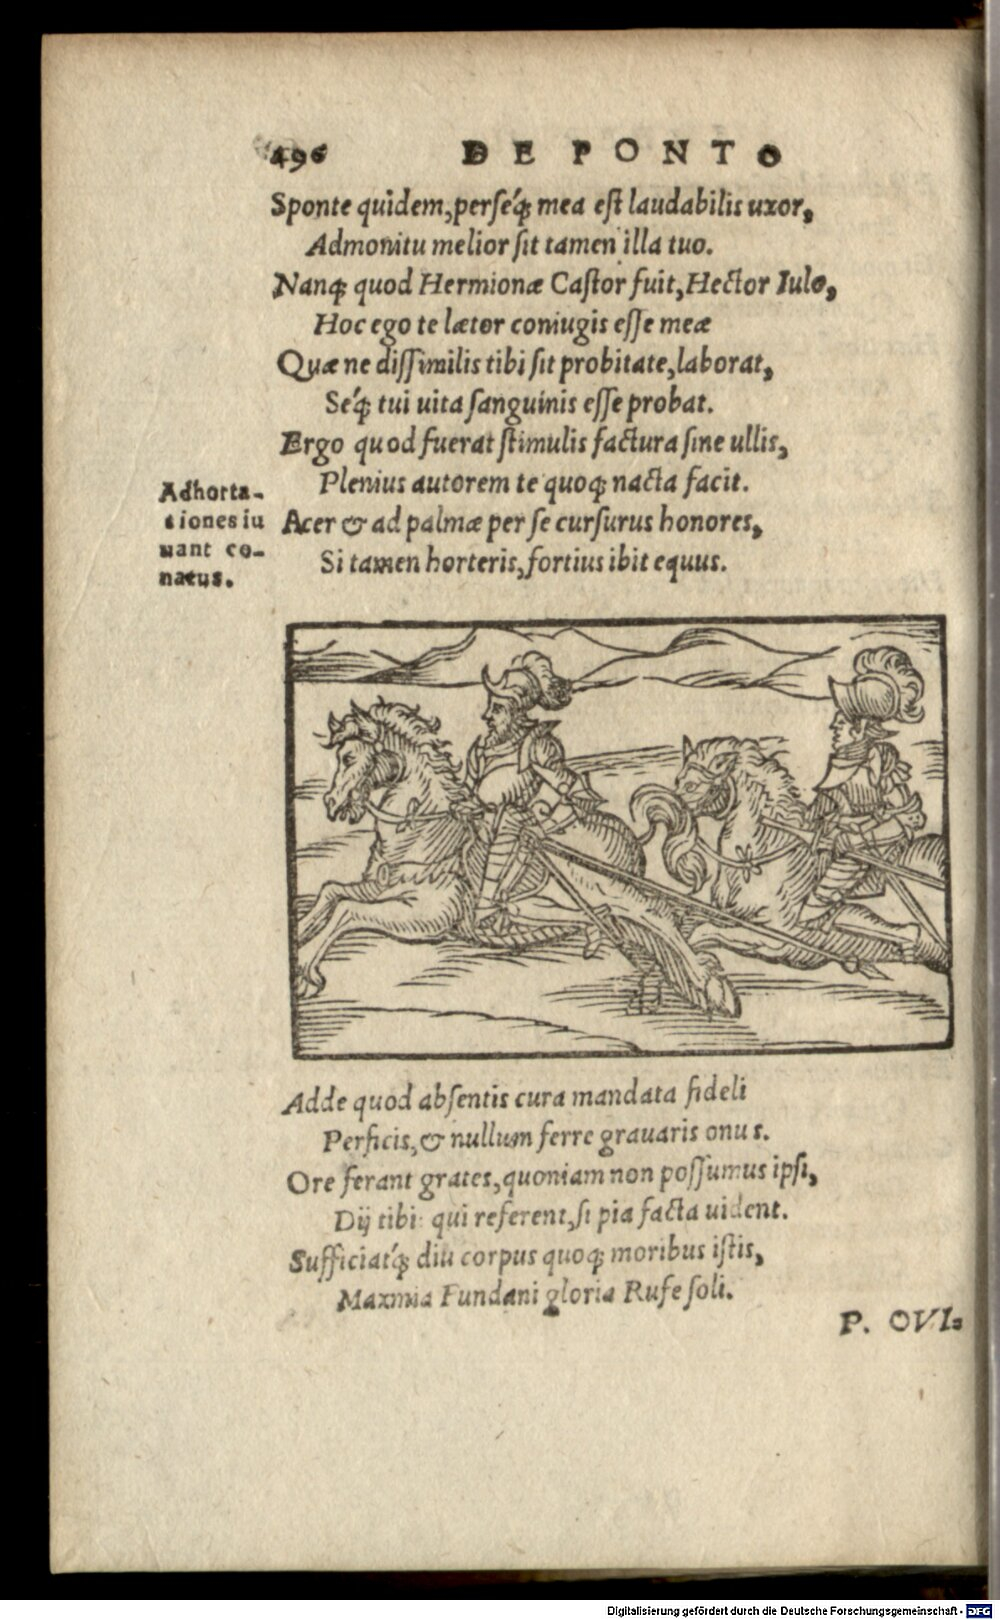 496 DE PONTO
Sponte quidem, perseq́; mea est laudabilis uxor,
Admonitu melior sit tamen illa tuo.
Nanq; quod Hermionæ Castor fuit, Hector Iulo,
Hoc ego te lætor coniugis esse meæ
Quæ ne dissimilis tibi sit probitate, laborat,
Seq́; tui uita sanguinis esse probat.
Ergo quod fuerat stimulis factura sine ullis,
Plenius autorem te quoq; nacta facit.
Adhorta-
tiones iu
uant co-
natus.
Acer & ad palmæ per se cursurus honores,
Si tamen horteris, fortius ibit equus.
Adde quod absentis cura mandata fideli
Perficis, & nullum ferre grauaris onus.
Ore ferant grates, quoniam non possumus ipsi,
Dij tibi: qui referent, si pia facta uident.
Sufficiatq́; diu corpus quoq; moribus istis,
Maxmia Fundani gloria Rufe soli.
P. OVI=
Digitalisierung gefördert durch die Deutsche Forschungsgemeinschaft - DFG